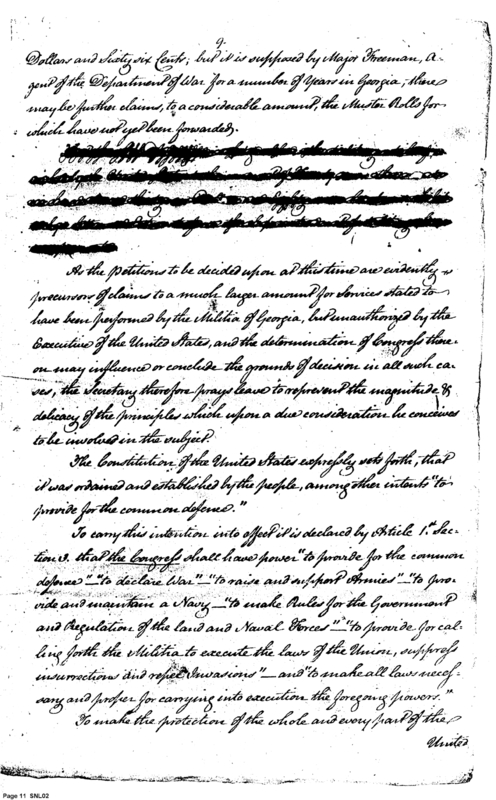 9.
Dollars and Sixty six Cents; but it is supposed by Major Freeman, A-
gent of the Department of War for a number of Years in Georgia, there
may be further claims, to a considerable amount, the Muster Rolls for
which have not yet been forwarded.
As the Petitions to be decided upon at this time are evidently
precursors of claims to a much larger amount for Services stated to
have been performed by the Militia of Georgia, but unauthorized by the
Executive of the United States, and the determination of Congress there-
on may influence or conclude the grounds of decision in all such ca-
ses, the Secretary therefore prays leave to represent the magnitude &
delicacy of the principles which upon a due consideration he conceives
to be involved in the subject.
The Constitution of the United States expressly sets forth, that
it was ordained and established by the people, among other intents "to
provide for the common defence."
To carry this intention into effect it is declared by Article 1st Sec-
tion 8. that the Congress shall have power "to provide for the common
defence" — "to declare War" — "to raise and support Armies" — "to pro-
vide and maintain a Navy — "to make Rules for the Government
and Regulation of the land and Naval Forces" — "to provide for cal-
ling forth the Militia to execute the laws of the Union, suppress
insurrections and repel Invasions" — and "to make all laws neces-
sary and proper for carrying into execution the foregoing powers."
To make the protection of the whole and every part of the
United
Page 11 SNL02